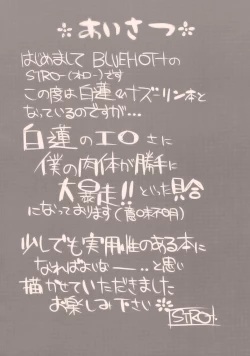 ＊あいさつ＊
はじめまして BLUEHOT+の
STRO-(オロ-)です
この度は白蓮&ナズーリン本と
なっているのですが…
白蓮のエロさに
僕の肉体が勝手に
大暴走!!といった具合
になっております(意味不明)
少しでも実用性のある本に
なればよいなー…と思い
描かせていただきました
お楽しみ下さい＊
STRO-